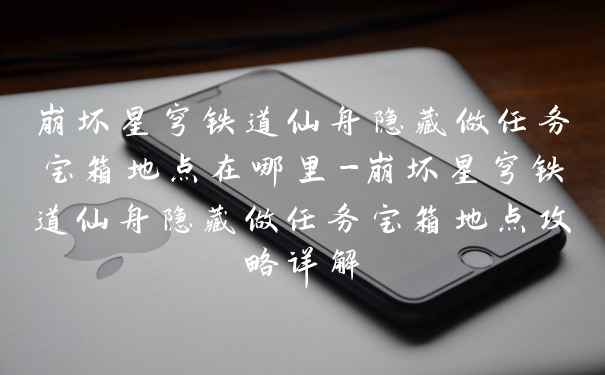 崩坏星穹铁道仙舟隐藏做任务
宝箱地点在哪里-崩坏星穹铁
道仙舟隐藏做任务宝箱地点攻
略详解